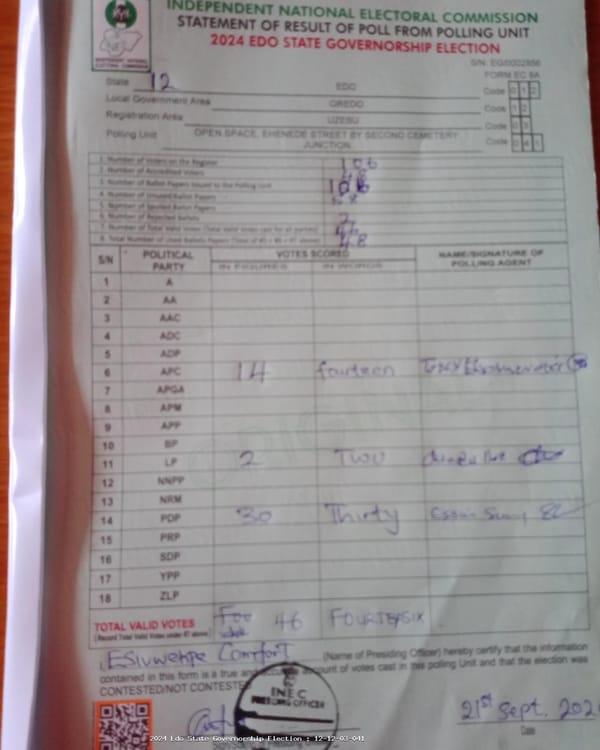 INDEPENDENT NATIONAL ELECTORAL COMMISSION
STATEMENT OF RESULT OF POLL FROM POLLING UNIT
2024 EDO STATE GOVERNORSHIP ELECTION
FORM EC 8A
State 12 EDO Code 0 1 2
Local Government Area OREDO Code 1 2
Registration Area UZEBU Code 0 3
Polling Unit OPEN SPACE, EHENEDE STREET BY SECOND CEMETERY JUNCTION, Code 0 4 1
1. Number of Voters on the Register 106
2. Number of Accredited Voters 48
3. Number of Ballot Papers Issued to the Polling Unit 106
4. Number of Unused Ballot Papers 58
5. Number of Spoiled Ballot Papers
6. Number of Rejected Ballots 2
7. Number of Total Valid Votes (Total Valid Votes cast for all parties) 46
8. Total Number of Used Ballot Papers (Total of #5 + #6 + #7 above) 48
S/N POLITICAL PARTY VOTES SCORED NAME/SIGNATURE OF POLLING AGENT
IN FIGURES IN WORDS
1 A
2 AA
3 AAC
4 ADC
5 ADP
6 APC 14 fourteen
7 APGA
8 APM
9 APP
10 BP
11 LP 2 TWO
12 NNPP
13 NRM
14 PDP 30 Thirty
15 PRP
16 SDP
17 YPP
18 ZLP
TOTAL VALID VOTES 46 FOURTEYSIX
(Record Total Valid Votes under #7 above)
I, ESIUWEHPE Comfort (Name of Presiding Officer) hereby certify that the information
contained in this form is a true and account of votes cast in this polling Unit and that the election was
CONTESTED/NOT CONTESTED
INEC
PRESIDING OFFICER
21st Sept. 202
Date
2024 Edo State Governorship Election : 12-12-03-041